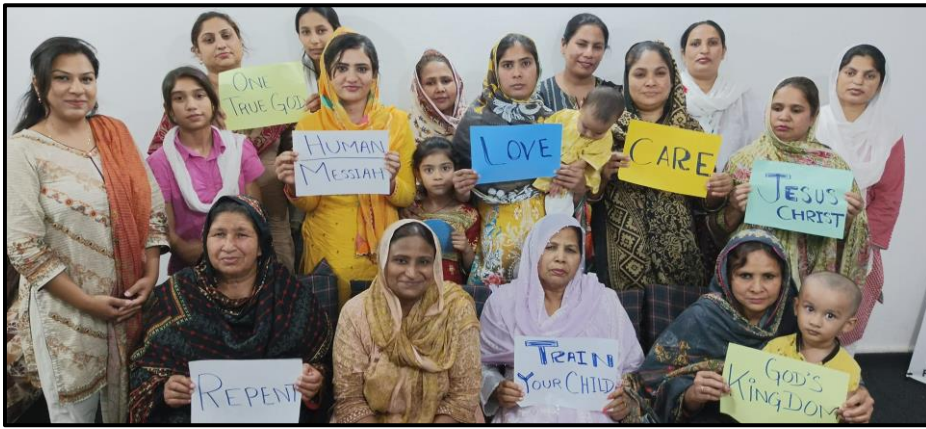 ONE
TRUE GOD
HUMAN
MESSIAH
LOVE
CARE
JESUS
CHRIST
REPENT
TRAIN
YOUR CHILD
GOD'S
KINGDOM